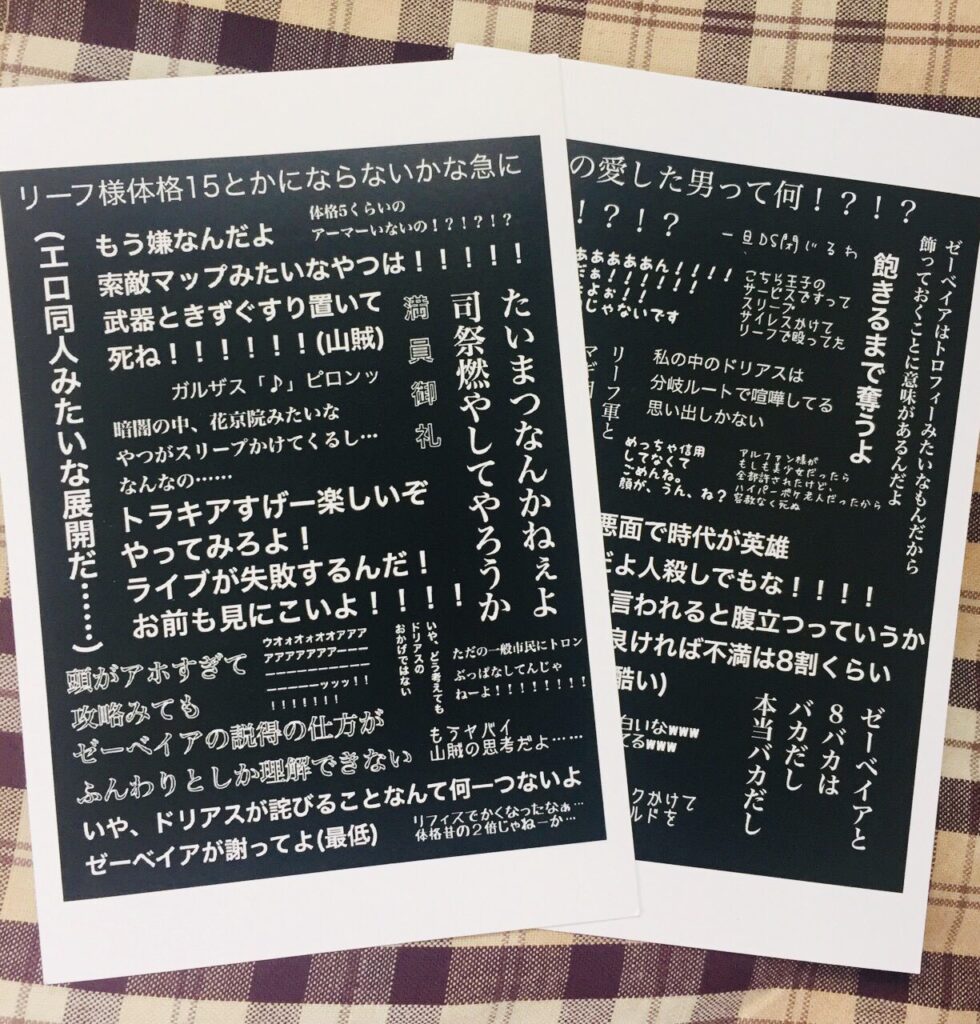 リーフ様体格15とかにならないかな急に
(エロ同人みたいな展開だ……)
もう嫌なんだよ
体格5くらいの
アーマーいないの！?！?！?
索敵マップみたいなやつは！！！！！
武器ときずぐすり置いて
死ね！！！！！！(山賊)
満員御礼
たいまつなんかねぇよ
司祭燃やしてやろうか
ガルザス「♪」ピロンッ
暗闇の中、花京院みたいな
やつがスリープかけてくるし…
なんなの……
トラキアすげー楽しいぞ
やってみろよ！
ライブが失敗するんだ！
お前も見にこいよ！！！！
頭がアホすぎて
攻略みても
ゼーベイアの説得の仕方が
ふんわりとしか理解できない
ウオォオォオオアアア
アアアアアアアーーー
ーーーーーーーーーー
ーーーーーーッッッ！！
！！！！！！！
いや、どう考えても
ドリアスの
おかげではない
ただの一般市民にトロン
ぶっぱなしてんじゃ
ねーよ！！！！！！！！
もうヤバイ
山賊の思考だよ……
いや、ドリアスが詫びることなんて何一つないよ
ゼーベイアが謝ってよ(最低)
リフィスでかくなったなぁ…
体格昔の2倍じゃねーか…
の愛した男って何！?！?
！?！?
一旦DS閉じるわ
ゼーベイアはトロフィーみたいなもんだから
飾っておくことに意味があるんだよ
飽きるまで奪うよ
ああああん！！！！
だぁ！！！！！
よぉ！！
じゃないです
こちら王子の
サービスですって
スリープ
サイレスかけて
リーフで殴ってた
リーフ軍と
私の中のドリアスは
分岐ルートで喧嘩してる
思い出しかない
めっちゃ信用
してなくて
ごめんね。
顔が、うん、ね？
アルファン様が
もしも美少女だったら
全部許されたけど、
ハイパーボケ老人だったから
容赦なく死ぬ
悪面で時代が英雄
だよ人殺しでもな！！！！
言われると腹立つっていうか
良ければ不満は8割くらい
酷い)
ゼーベイアと
8バカは
バカだし
本当バカだし
白いなwww
てるwww
クかけて
ルドを